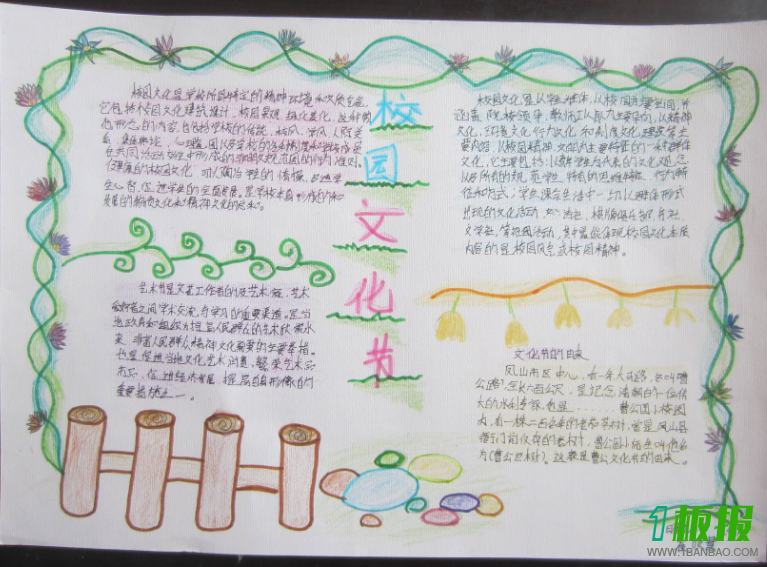 校园文化节
校园文化是学校所具有特定的精神环境和文化气氛,
它包括校园文化建筑设计、校园景观、绿化美化、这种物
化形态的内容,也包括学校的传统、校风、学风、人际关
系、集体舆论、心理氛围以及学校的各种规章制度和
在共同活动交往中形成的非明文规范的行为准则。
健康的校园文化,可以陶冶学生的情操、启迪学
生心智,促进学生的全面发展。是学校本身形成的和
发展的物质文化和精神文化的总和。
艺术节是文艺工作者的及艺术院、艺术
爱好者之间学术交流、合学习的重要渠道。是当
地政府和组织为提高人民群众的艺术欣赏水
来、丰富人民群众精神文化需要的主要举措。
也是促进当地文化艺术沟通、繁荣艺术品
市场、促进经济发展、提高自身形象的
重要措施之一。
校园文化是以学生为主体,以校园为主要空间,并
涵盖院校领导、教师
文化、行为文化和制度文化
要内容,以校园精神文明为主要特征的一种群体
文化,它主要包括:以教学生为代表的文化观念
以及所有的规范学生特有的思维特征、行为特
征和方式;学生课余生活中一切以群体形式
出现的文化活动,如:沙龙、棋牌俱乐部、舞社、
文学社、常规团活动,其中最能体现校园文化本质
内容的是校园风气或校园精神。
文化节的由来
凤山市区中心,有一条大马路,名叫曹
公路,全长六百公尺,是纪念清朝的一位伟
大的水利专家,也是........曹公国小校园
内,有一棵二百多年的老茄苳树,曾是凤山县
衙门前仅存的老树,曹公国小师生叫他名
为(曹公老树)。这就是曹公文化节的由来。
1板报
WWW.1BANBAO.COM